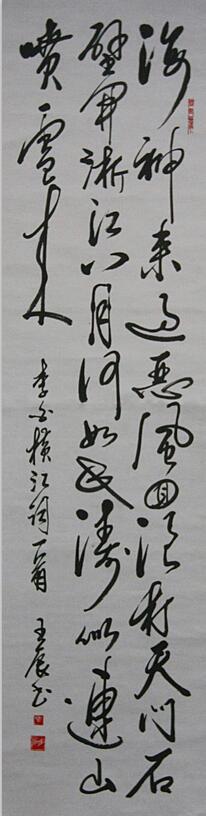 海神来过恶风回浪打天门石
壁开浙江八月何如此涛似连山
喷雪来
李白横江词一首 王辰书